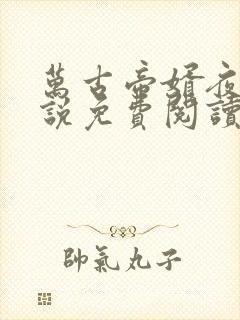 萬古帝婿夜
說免費閱讀
帥氣丸子